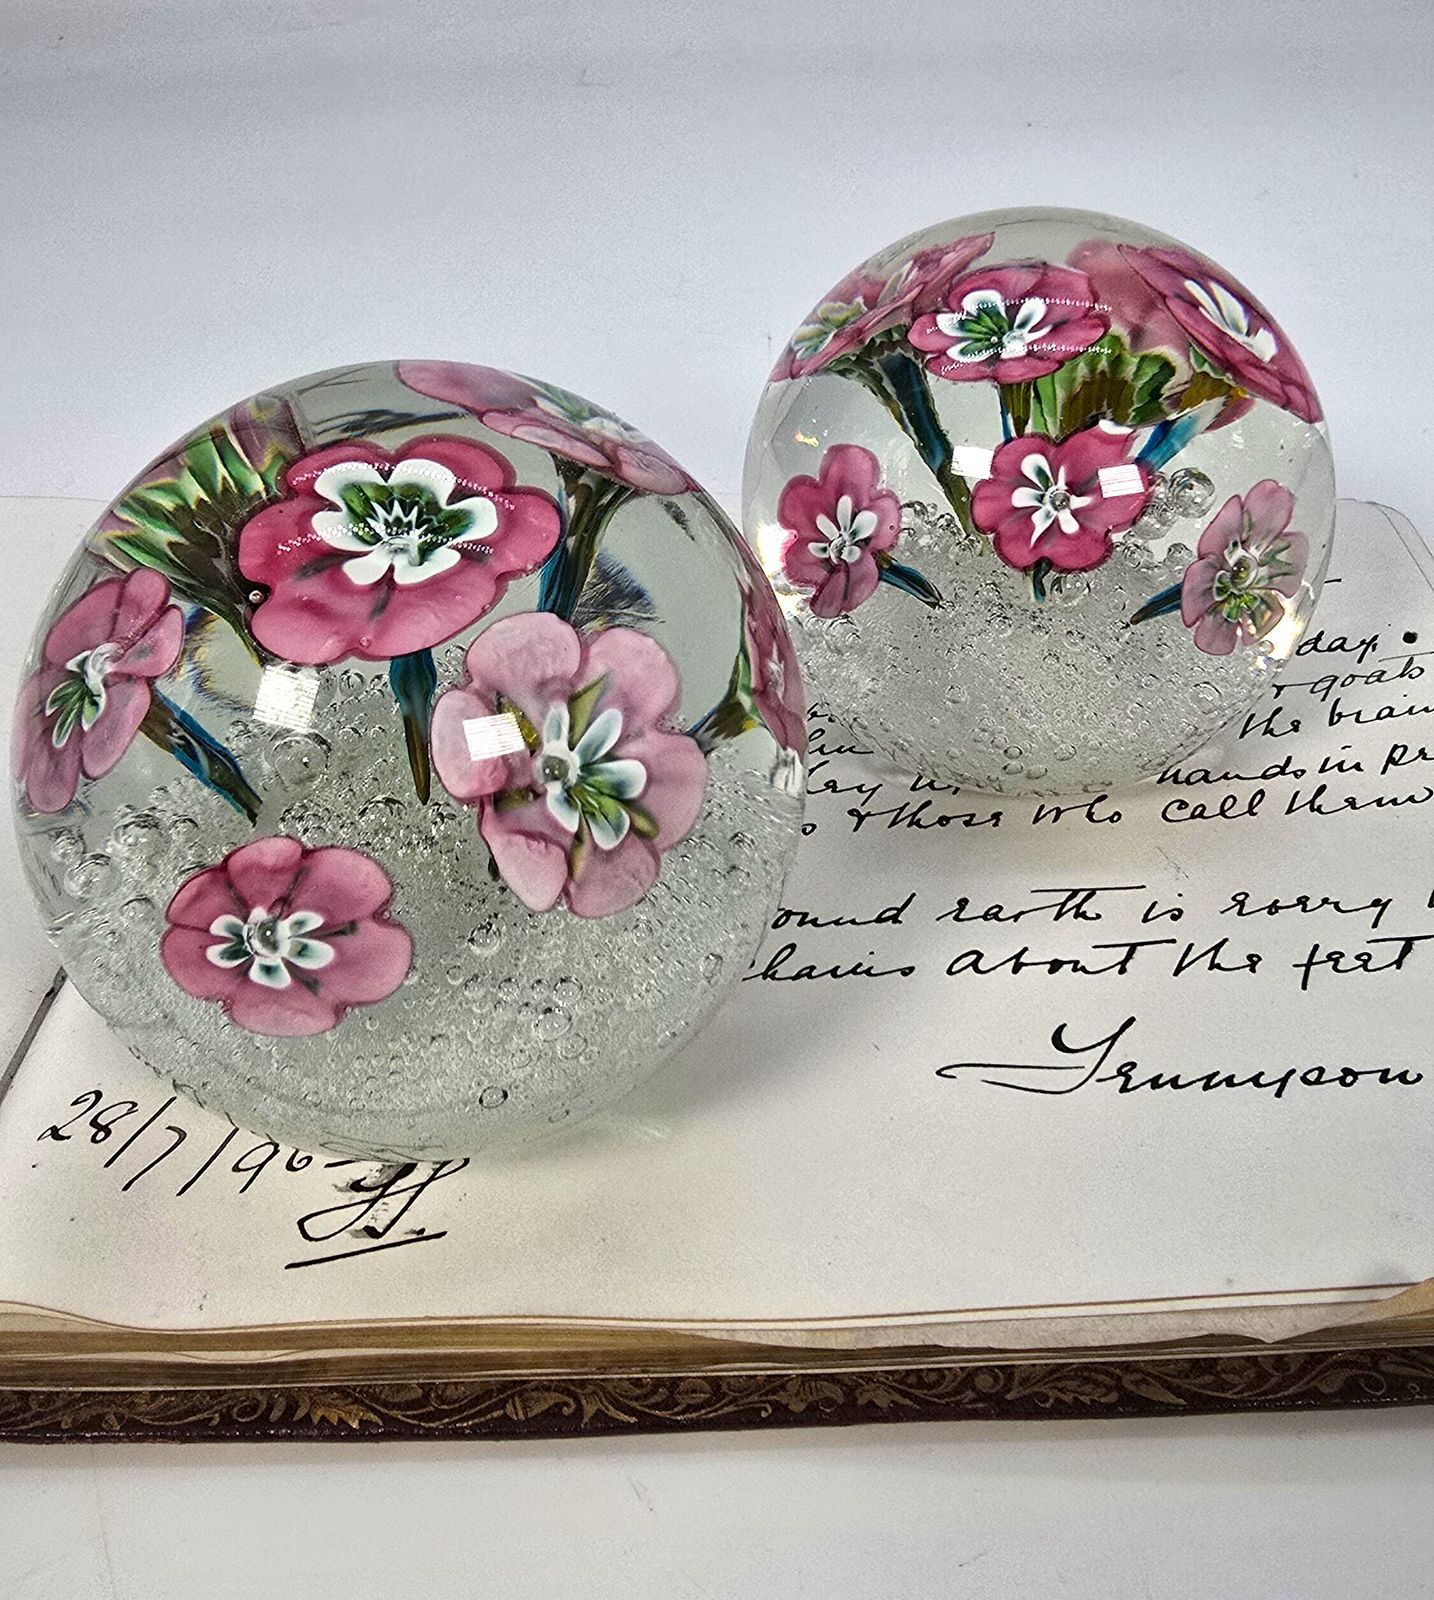 day.
goats
the brain
hands in pr
& those who call them
ound earth is every
chains about the feet
Tennyson
28/7/96